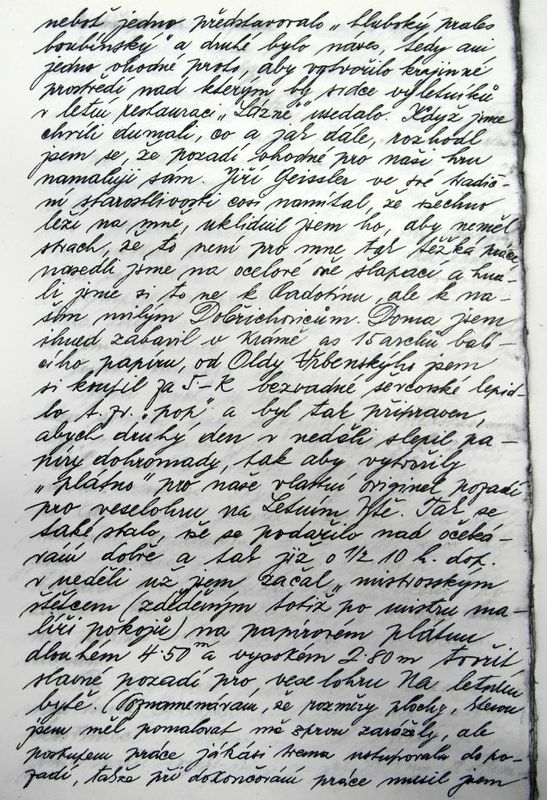 neboť jedno představovalo „hluboký prales
boubínský" a druhé bylo náves, tedy ani
jedno vhodné proto, aby vytvořilo krajinné
prostředí nad kterým by srdce výletníků
v letní restauraci „Lázně" usedalo. Když jsme
chvíli dumali, co a jak dále, rozhodl
jsem se, že pozadí vhodné pro naši hru
namaluji sám. Jiří Geissler ve své tradič-
ní starostlivosti cosi namítal, že všechno
leží na mně, uklidnil jsem ho, aby neměl
strach, že to není pro mne tak těžká práce
nasedli jsme na ocelové oře šlapací a hna-
li jsme si to ne k Radotínu, ale k na-
šim milým Dobřichovicům. Doma jsem
ihned zabavil v krámě as 15 archů bali-
cího papíru, od Oldy Vrbenskýho jsem
si koupil za 5-K bezvadné ševcovské lepid-
lo t. zv. „pop" a byl tak připraven,
abych druhý den v neděli slepil pa-
píry dohromady, tak aby vytvořily
„plátno" pro naše vlastní originel pozadí
pro veselohru na Letním bytě. Tak se
také stalo, že se podařilo nad očeká-
vání dobře a tak již o 1/2 10 h. dop.
v neděli už jsem začal „mistrovským
štětcem (zděděným totiž po mistru ma-
líři pokojů) na papírovém plátnu
dlouhém 4·50 m a vysokém 2·80 m tvořit
slavné pozadí pro veselohru Na letním
bytě. (Poznamenávám, že rozměry plochy, kterou
jsem měl pomalovat mě zprvu zarážely, ale
postupem práce jakási trema ustupovala do po-
zadí, takže při dokončování práce musil jsem